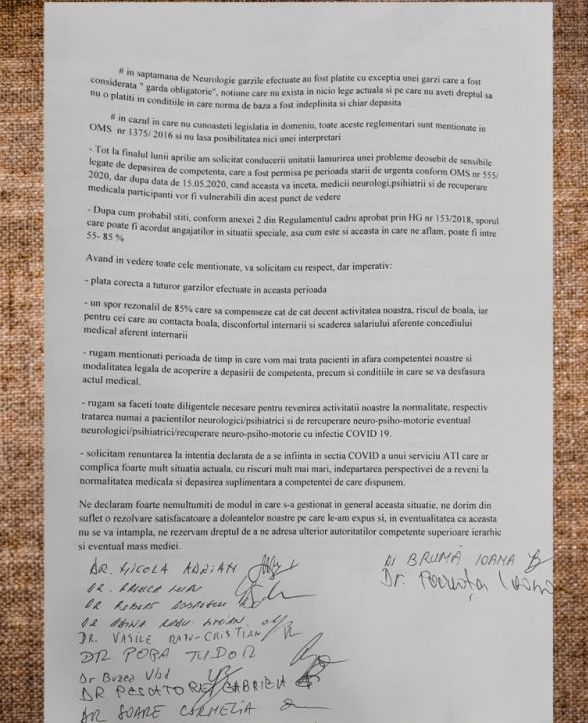 # in saptamana de Neurologie garzile efectuate au fost platite cu exceptia unei garzi care a fost
considerata " garda obligatorie", notiune care nu exista in nicio lege actuala si pe care nu aveti dreptul sa
nu o platiti in conditiile in care norma de baza a fost indeplinita si chiar depasita
# in cazul in care nu cunoasteti legislatia in domeniu, toate aceste reglementari sunt mentionate in
OMS nr 1375/ 2016 si nu lasa posibilitatea nici unei interpretari
- Tot la finalul lunii aprilie am solicitat conducerii unitatii lamurirea unor probleme deosebit de sensibile
legate de depasirea de competenta, care a fost permisa pe perioada starii de urgenta conform OMS nr 555/
2020, dar dupa data de 15.05.2020, cand aceasta va inceta, medicii neurologi,psihiatrii si de recuperare
medicala participanti vor fi vulnerabili din acest punct de vedere
- Dupa cum probabil stiti, conform anexei 2 din Regulamentul cadru aprobat prin HG nr 153/2018, sporul
care poate fi acordat angajatilor in situatii speciale, asa cum este si aceasta in care ne aflam, poate fi intre
55- 85 %
Avand in vedere toate cele mentionate, va solicitam cu respect, dar imperativ:
- plata corecta a tuturor garzilor efectuate in aceasta perioada
- un spor rezonalil de 85% care sa compenseze cat de cat decent activitatea noastra, riscul de boala, iar
pentru cei care au contacta boala, disconfortul internarii si scaderea salariului aferente concediului
medical aferent internarii
- rugam mentionati perioada de timp in care vom mai trata pacienti in afara competentei noastre si
modalitatea legala de acoperire a depasirii de competenta, precum si conditiile in care se va desfasura
actul medical.
- rugam sa faceti toate diligentele necesare pentru revenirea activitatii noastre la normalitate, respectiv
tratarea numai a pacientilor neurologici/psihiatrici si de rercuperare neuro-psiho-motorie eventual
neurologici/psihiatrici/recuperare neuro-psiho-motorie cu infectie COVID 19.
- solicitam renuntarea la intentia declarata de a se infiinta in sectia COVID a unui serviciu ATI care ar
complica foarte mult situatia actuala, cu riscuri mult mai mari, indepartarea perspectivei de a reveni la
normalitatea medicala si depasirea suplimentara a competentei de care dispunem.
Ne declaram foarte nemultumiti de modul in care s-a gestionat in general aceasta situatie, ne dorim din
suflet o rezolvare satisfacatoare a doleantelor noastre pe care le-am expus si, in eventualitatea ca aceasta
nu se va intampla, ne rezervam dreptul de a ne adresa ulterior autoritatilor competente superioare ierarhic
si eventual mass mediei.
DR. NICOLA ADRIAN
DR. RALUCA
DR ROBERT
DR RADU
DR. VASILE RADU-CRISTIAN
DR POPA TUDOR
Dr Buzea Vlad
DR PESCATORE GABRIELA
DR SOARE CORMELIA
Dr BRUMĂ IOANA
Dr.